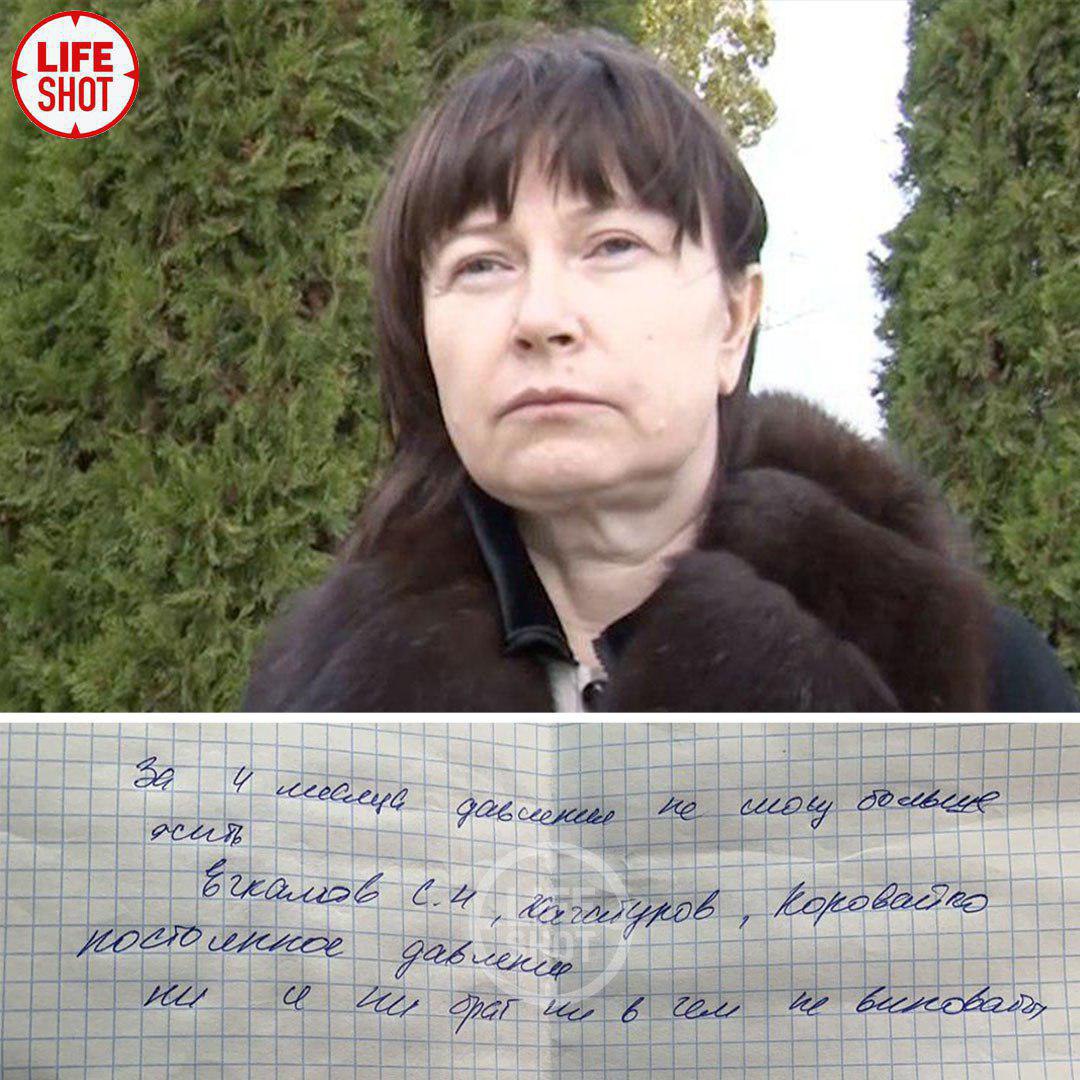 LIFE
SHOT
За 4 месяца давления не могу больше
жить
С.Н, Хачатуров, Коровайко
постоянное давление
ни я ни брат ни в чем не виноваты
LIFE
SHOT